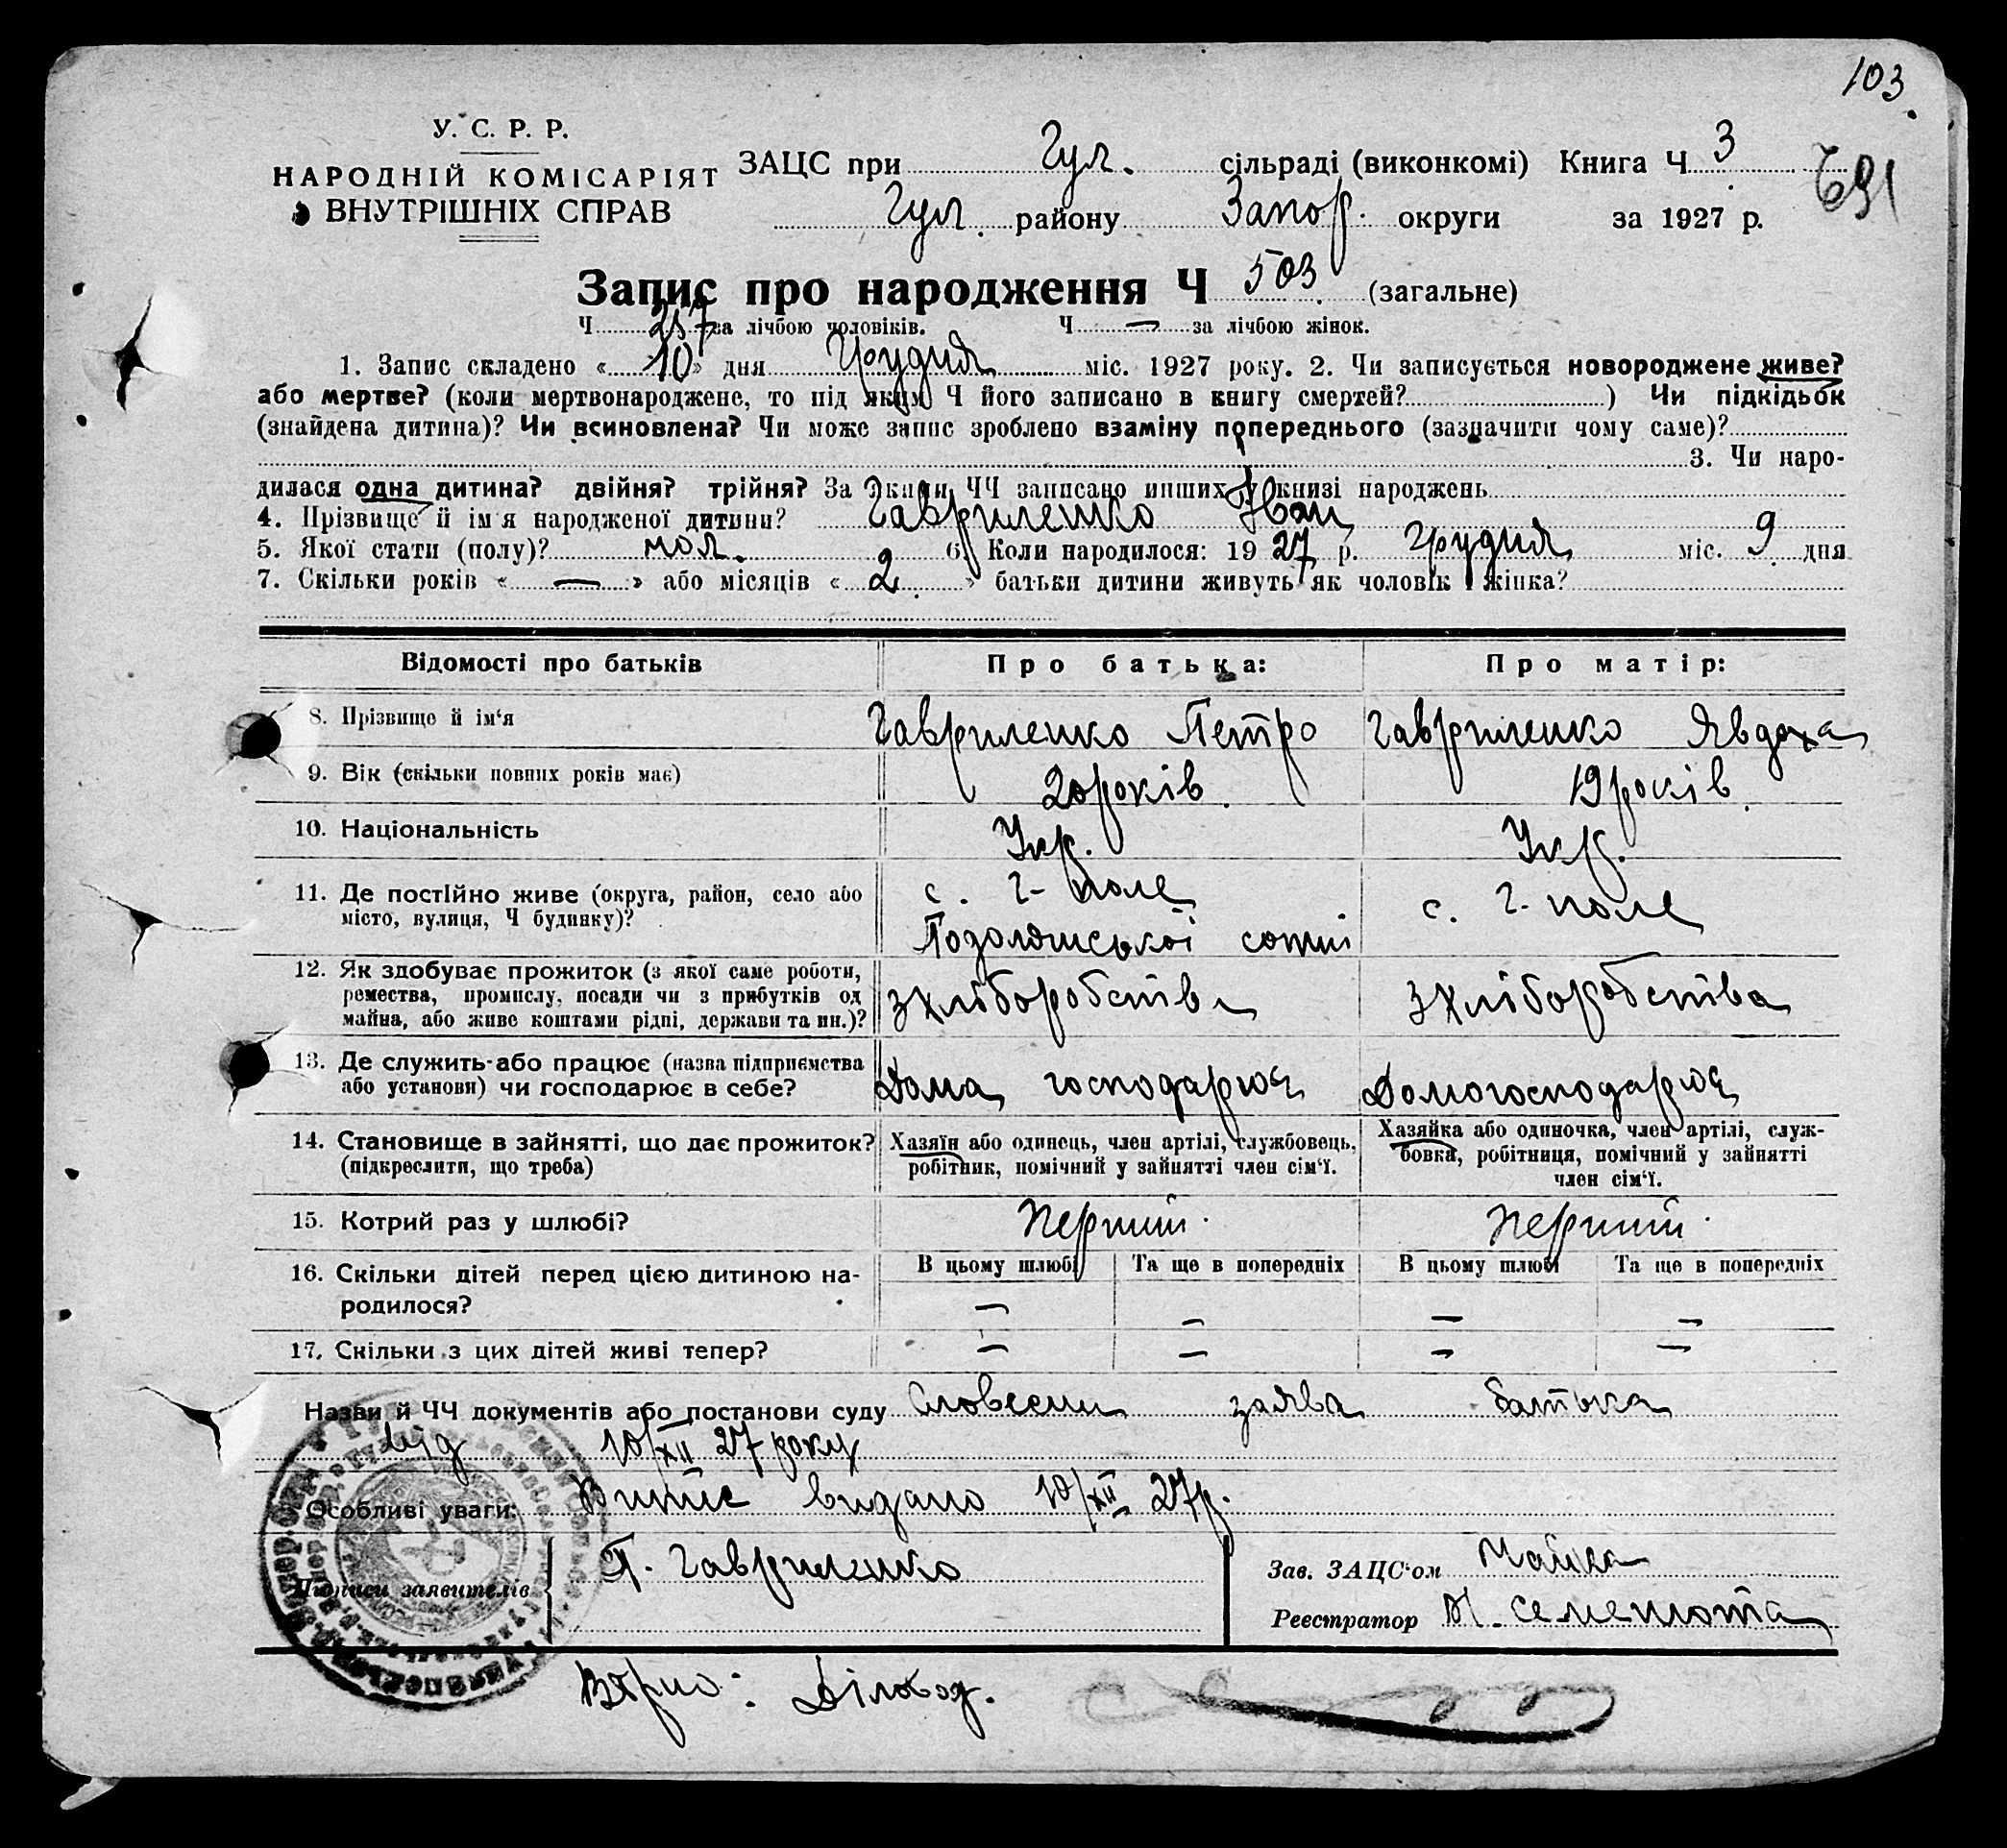 103
У. С. Р. Р.
НАРОДНІЙ КОМІСАРІЯТ
ВНУТРІШНІХ СПРАВ
ЗАЦС при Гул. сільраді (виконкомі) Книга Ч 3
Гул. району Запор. округи за 1927 р.
Запис про народження Ч 503 (загальне)
Ч 257 за лічбою чоловіків. Ч — за лічбою жінок.
1. Запис складено « 10 » дня Грудня міс. 1927 року. 2. Чи записується новороджене живе?
або мертве? (коли мертвонароджене, то під яким Ч його записано в книгу смертей? ) Чи підкідьок
(знайдена дитина)? Чи всиновлена? Чи може запис зроблено взаміну попереднього (зазначити чому саме)?
3. Чи наро-
дилася одна дитина? двійня? трійня? За якими ЧЧ записано инших у книзі народжень
4. Прізвище й ім'я народженої дитини? Гавриленко Іван
5. Якої стати (полу)? мол. 6. Коли народилося: 1927 р. Грудня міс. 9 дня
7. Скільки років « — » або місяців « 2 » батьки дитини живуть як чоловік і жінка?
Відомості про батьків Про батька: Про матір:
8. Прізвище й ім'я Гавриленко Петро Гавриленко Явдоха
9. Вік (скільки повних років має) 20 років 19 років.
10. Національність Укр. Укр.
11. Де постійно живе (округа, район, село або с. Г-поле с. Г-поле
місто, вулиця, Ч будинку)? Подолянської сотні
12. Як здобуває прожиток (з якої саме роботи,
ремества, промислу, посади чи з прибутків од з хліборобства з хліборобства
майна, або живе коштами рідні, держави та ин.)?
13. Де служить або працює (назва підприємства
або установи) чи господарює в себе? Дома господарює Домогосподарює
14. Становище в зайнятті, що дає прожиток? Хазяїн або одинець, член артілі, службовець, Хазяйка або одиночка, член артілі, служ-
(підкреслити, що треба) робітник, помічний у зайнятті член сім'ї. бовка, робітниця, помічний у зайнятті
член сім'ї.
15. Котрий раз у шлюбі? Перший. Перший.
16. Скільки дітей перед цією дитиною на- В цьому шлюбі Та ще в попередніх В цьому шлюбі Та ще в попередніх
родилося? — — — —
17. Скільки з цих дітей живі тепер? — — — —
Назви й ЧЧ документів або постанови суду Словесни заява батька
від 10/XII 27 року
Особливі уваги: Випис видано 10/XII 27р.
Підписи заявителів П. Гавриленко Зав. ЗАЦС'ом Чайка
Реєстратор Семенюта
Вірно: Діловод.